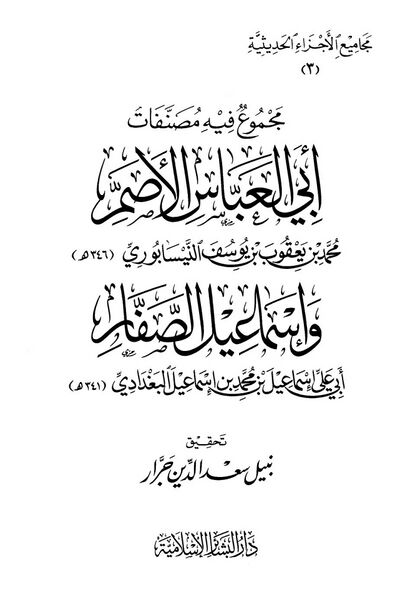 مجاميع الأجزاء الحديثية
(٣)
مَجْمُوعٌ فِيهِ مُصَنَّفَاتُ
أَبِي العَبَّاسِ الأَصَمِّ
مُحمَّد بن يَعقُوب بن يُوسُف النَّيسَابُوري (٣٤٦هـ)
وَإِسْمَاعِيلَ الصَّفَّارِ
أبي علي إسْمَاعيل بن محمّد بن إسْمَاعيل البَغْدَادي (٣٤١هـ)
تحقيق
نبيل سعد الدين جرار
دار البشائر الإسلامية